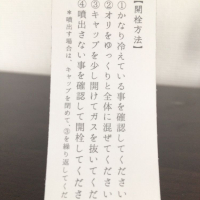 【開栓方法】
①かなり冷えている事を確認してください
②オリをゆっくりと全体に混ぜてください
③キャップを少し開けてガスを抜いてくだ
④噴出さない事を確認して開栓してくださ
＊噴出す場合は、キャップを閉めて、③を繰り返してくだ